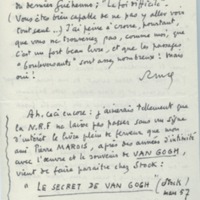 du dernier Guéhenno ; "La foi difficile".
(Vous êtes bien capable de ne pas y aller voir
tout seul...) J'ai peine à croire, pourtant,
que vous ne trouverez pas, comme moi, que
c'est un fort beau livre, et que les passages
"bouleversants" sont assez nombreux ! Mais
oui !
Ah, ceci encore : j'aimerais tellement que
la N.R.F ne laisse pas passer sans un signe
d'intérêt le livre plein de ferveur que mon
ami Pierre MAROIS, après des années d'intimité
avec l'œuvre et le souvenir de VAN GOGH
vient de faire paraître chez Stock :
"LE SECRET DE VAN GOGH" (Stock !
mars 57